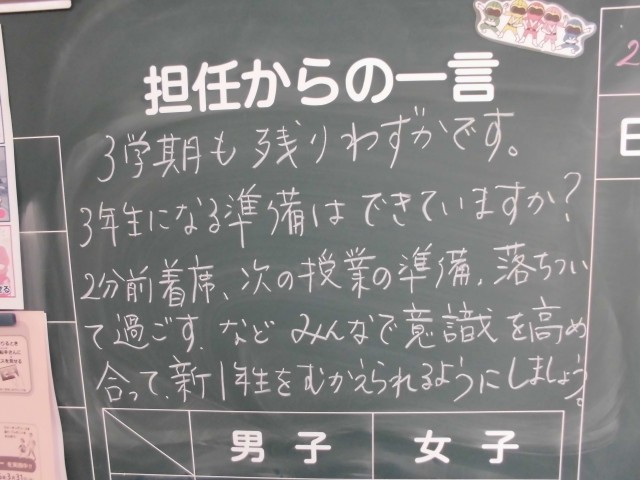 担任からの一言
3学期も残りわずかです。
3年生になる準備はできていますか?
2分前着席、次の授業の準備、落ちつい
て過ごす.など みんなで意識を高め
合って、新1年生をむかえられるようにしましょう。
男子 女子
2
日